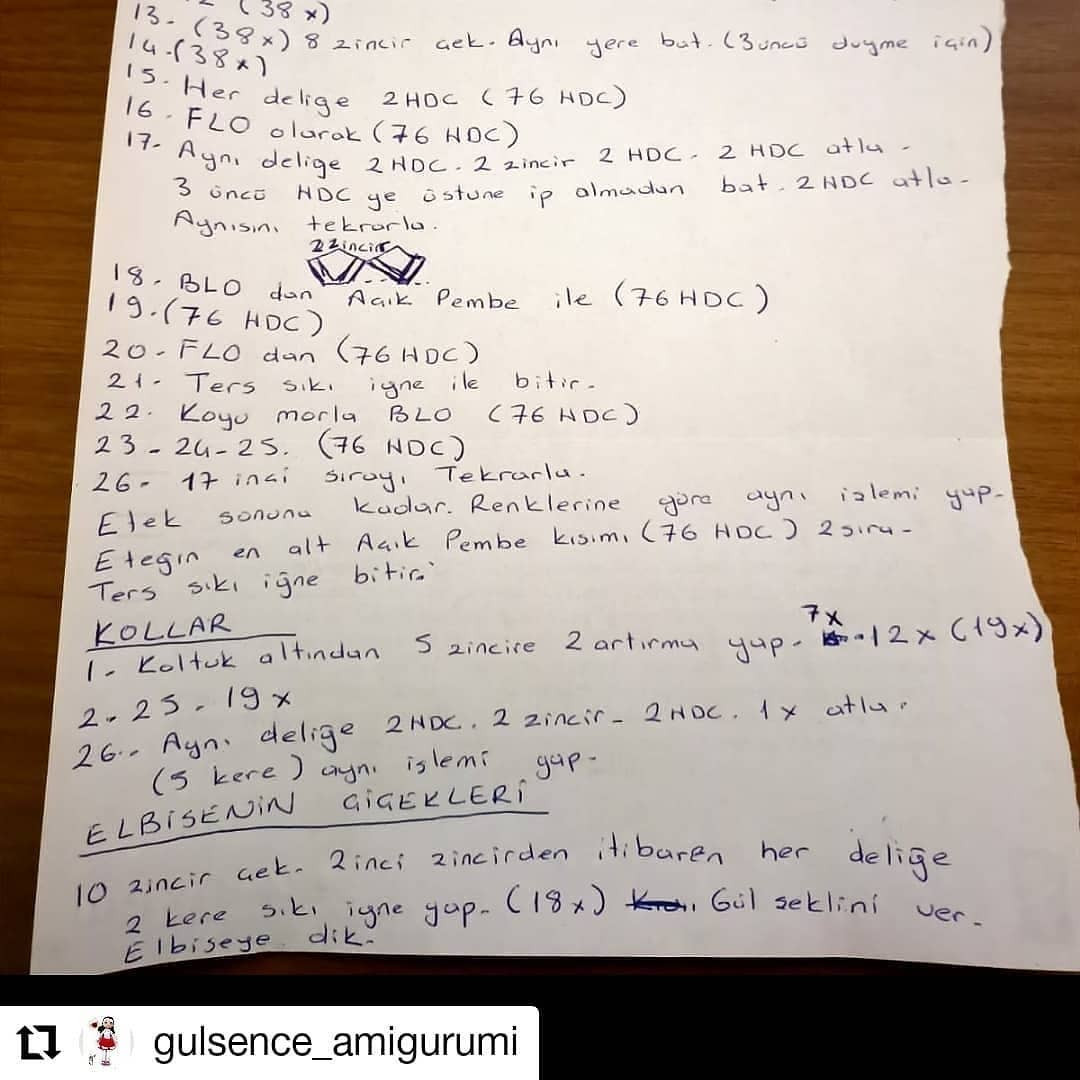 (38x)
13- (38x) 8 zincir çek. Aynı yere bat. (3üncü duyme için)
14-(38x)
15- Her delige 2HDC (76 HDC)
16. FLO olarak (76 HDC)
17- Aynı delige 2 HDC. 2 zincir 2 HDC. 2 HDC atla -
3 üncü HDC ye üstune ip almadan bat. 2 HDC atla-
Aynısını tekrarla.
2 Zincir
18. BLO dan Açık Pembe ile (76 HDC)
19.(76 HDC)
20- FLO dan (76 HDC)
21- Ters sıkı igne ile bitir-
22. Koyu morla BLO (76 HDC)
23-24-25. (76 HDC)
26- 17 inci sırayı Tekrarla.
Etek sonuna kadar. Renklerine göre aynı izlemi yap-
Etegin en alt Açık Pembe kısımı (76 HDC) 2 sıra-
Ters sıkı iğne bitir.
KOLLAR
7x
1- Koltuk altından 5 zincire 2 artırma yap- 12x (19x)
2-25. 19x
26.- Aynı deliğe 2HDC. 2 zincir- 2HDC. 1x atla.
(5 kere) aynı işlemi yap-
ELBİSENİN ÇİÇEKLERİ
10 zincir çek. 2inci zincirden itibaren her deliğe
2 kere sıkı igne yap- (18x) Gül seklini ver-
Elbiseye dik-
gulsence_amigurumi